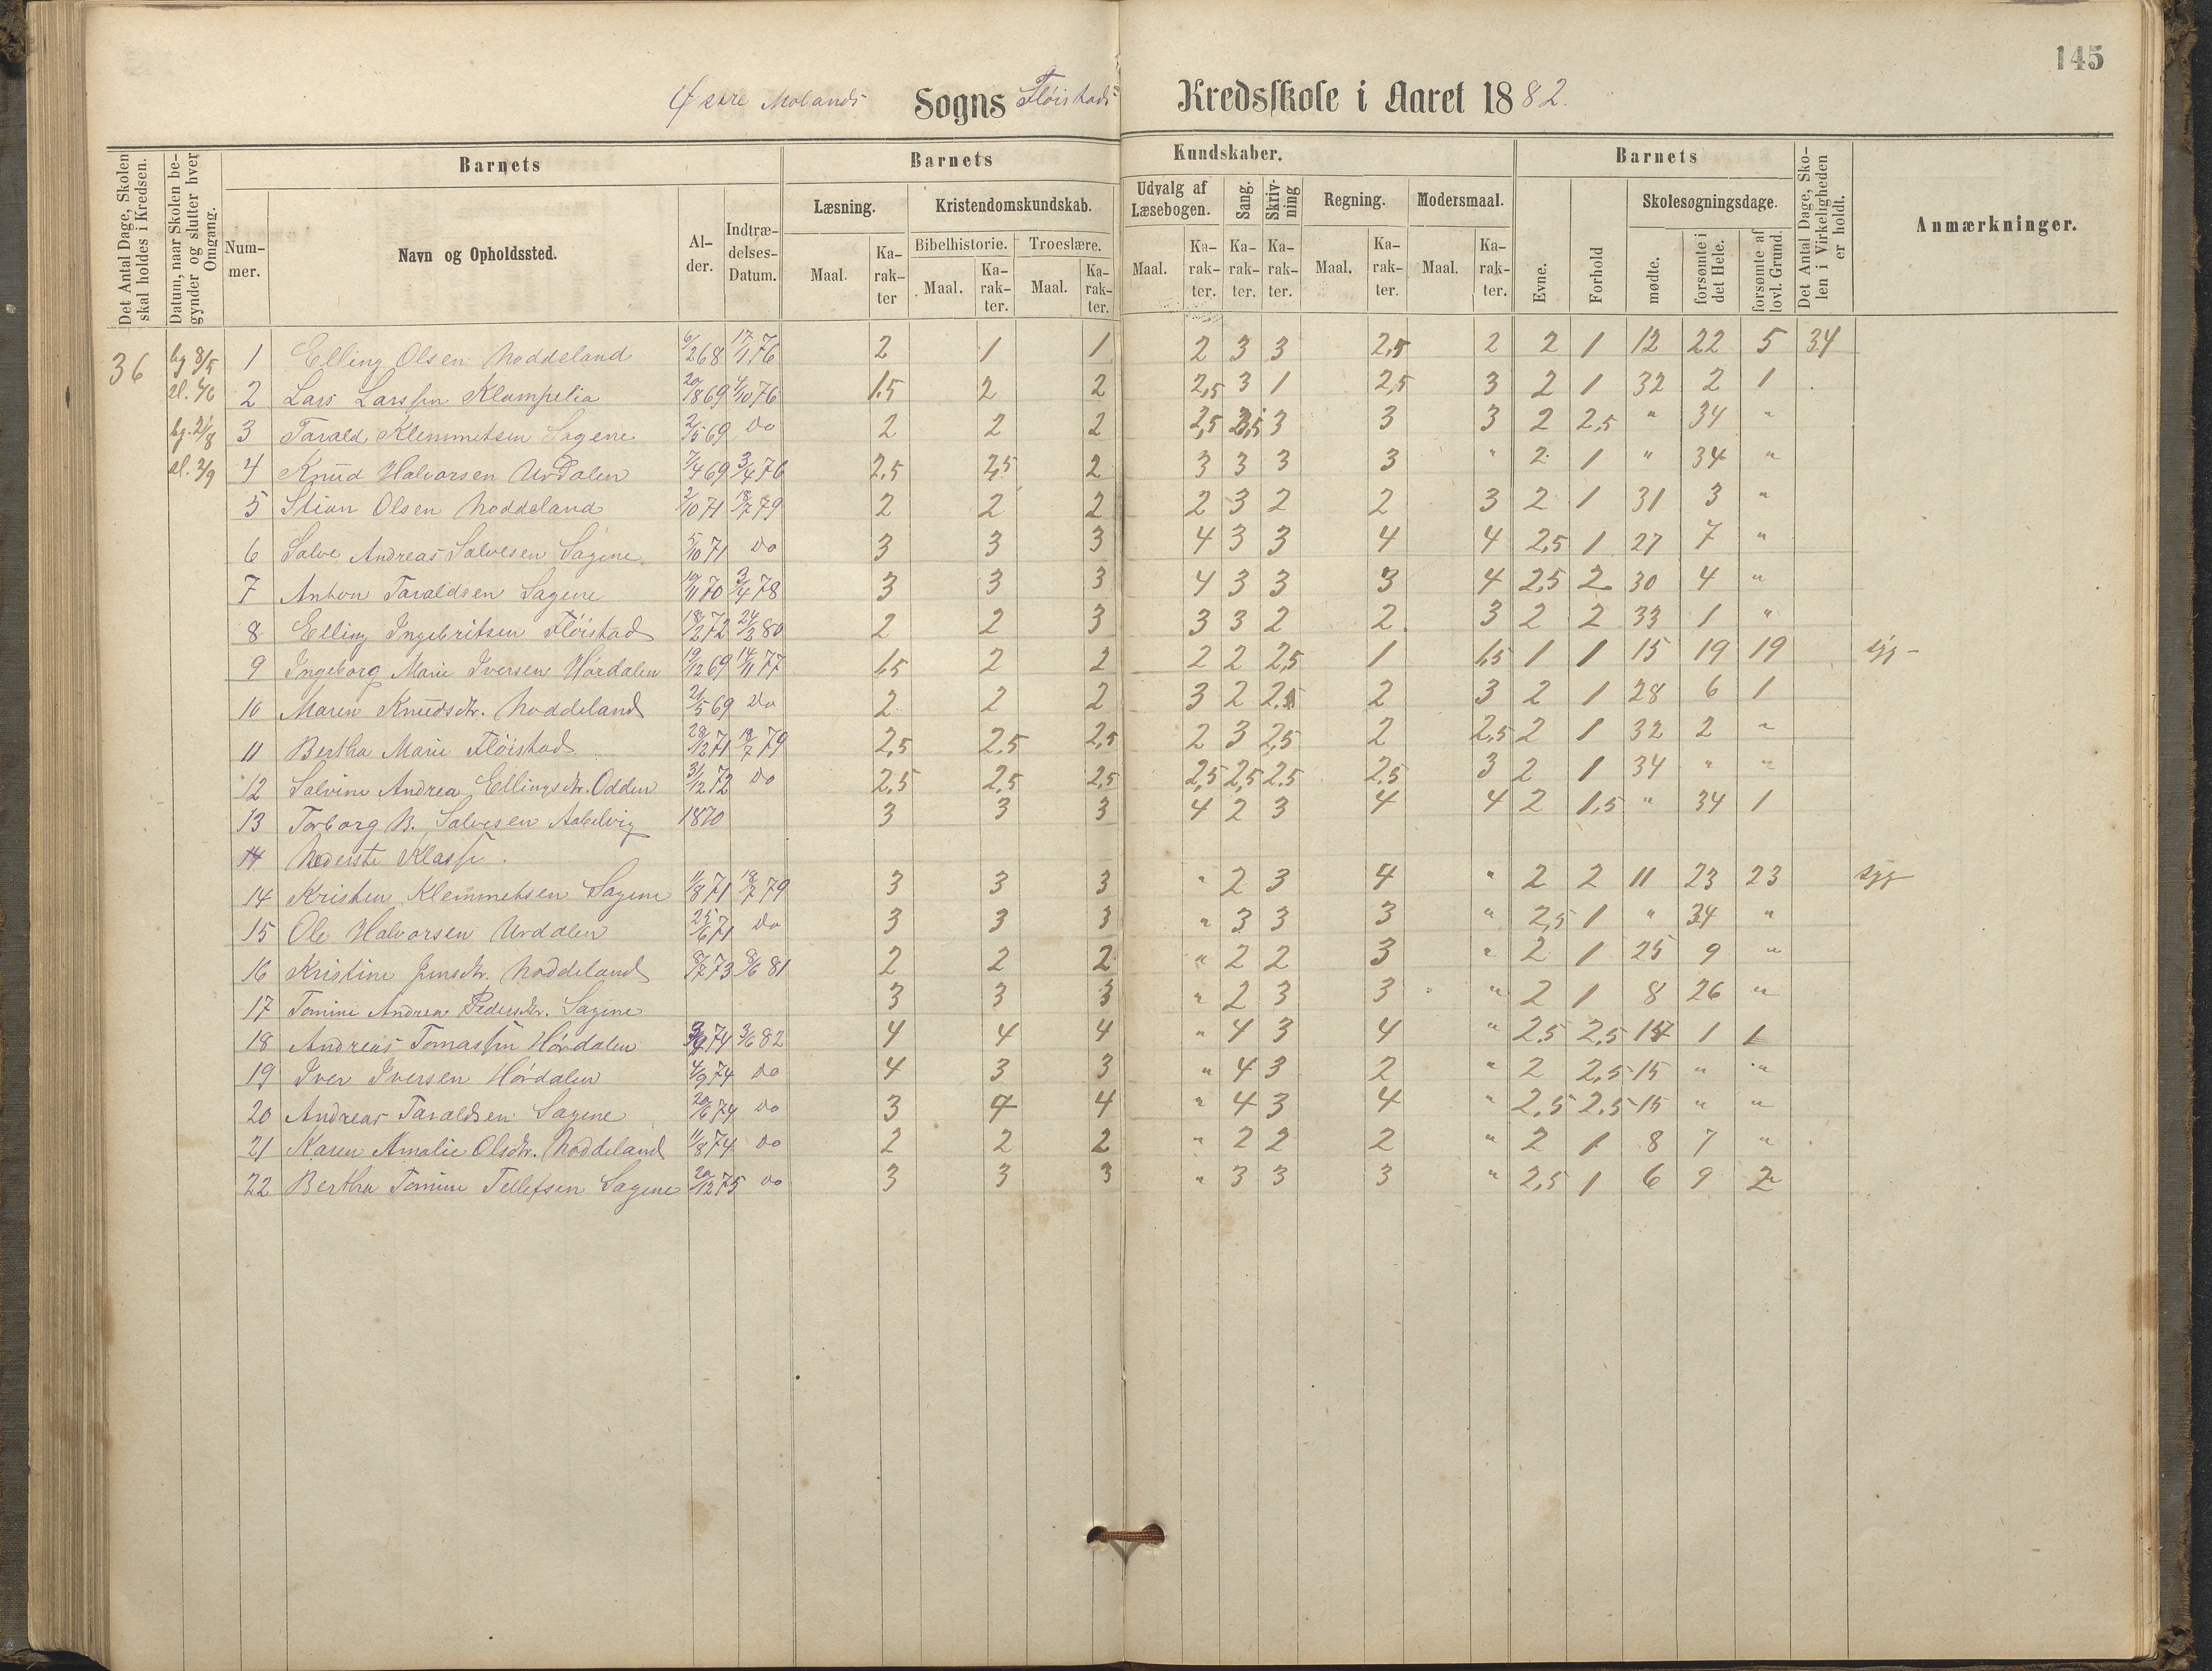 145
Østre Molands Sogns Flöistads Kredsskole i Aaret 1882.
Det Antal Dage, Skolen skal holdes i Kredsen.
Datum, naar Skolen begynder og slutter hver Omgang.
Barnets
Nummer.
Navn og Opholdssted.
Alder.
Indtrædelses-Datum.
Barnets Kundskaber.
Læsning.
Maal.
Karakter
Kristendomskundskab.
Bibelhistorie.
Maal.
Karakter.
Troeslære.
Maal.
Karakter.
Udvalg af Læsebogen.
Maal.
Karakter.
Sang.
Karakter.
Skrivning
Karakter.
Regning.
Maal.
Karakter.
Modersmaal.
Maal.
Karakter.
Barnets
Evne.
Forhold
Skolesøgningsdage.
mødte.
forsømte i det Hele.
forsømte af lovl. Grund.
Det Antal Dage, Skolen i Virkeligheden er holdt.
Anmærkninger.
36 bg 8/5 1 Elling Olsen Noddeland 6/2 68 17/1 76 2 1 1 2 3 3 2,5 2 2 1 12 22 5 34
2 Lars Larssen Klampelia 20/8 69 4/10 76 1.5 2 2 2,5 3 1 2,5 3 2 1 32 2 1
bg. 21/8 3 Tarald Klemmetsen Sagene 2/5 69 do 2 2 2 2,5 3 3 3 2 2,5 " 34 "
sl. 2/9 4 Knud Halvorsen Urdalen 7/4 69 3/4 76 2,5 2,5 2 3 3 3 3 " 2 1 " 34 "
5 Stian Olsen Noddeland 2/10 71 18/7 79 2 2 2 2 3 2 2 3 2 1 31 3 "
6 Salve Andreas Salvesen Sagene 5/10 71 do 3 3 3 4 3 3 4 4 2,5 1 27 7 "
7 Anton Taraldsen Sagene 19/11 70 3/4 78 3 3 3 4 3 3 3 4 2,5 2 30 4 "
8 Elling Ingebritsen Flöistad 18/2 72 24/3 80 2 2 3 3 3 2 2 3 2 2 33 1 "
9 Ingeborg Marie Iversen Hördalen 19/12 69 14/11 77 1,5 2 2 2 2 2,5 1 1,5 1 1 15 19 19 syg
10 Maren Knudsdtr. Noddeland 21/5 69 do 2 2 2 3 2 2 3 2 1 28 6 1
11 Bertha Marie Flöistad 28/12 71 18/7 79 2,5 2,5 2,5 2 3 2,5 2 2,5 2 1 32 2 "
12 Salvine Andrea Ellingsdtr. Odden 31/12 72 do 2,5 2,5 2,5 2,5 2,5 2,5 2,5 3 2 1 34 " "
13 Torborg B. Salvesen Aabelvig 1870 3 3 3 4 2 3 4 4 2 1,5 " 34 1
14 Nederste Klasse.
14 Kristen Klemmetsen Sagene 11/8 71 18/7 79 3 3 3 " 2 3 4 " 2 2 11 23 23 syg
15 Ole Halvorsen Urdalen 25/6 71 do 3 3 3 " 3 3 3 " 2,5 1 " 34 "
16 Kristine Jensdtr. Noddeland 8/7 73 8/6 81 2 2 2 " 2 2 3 " 2 1 25 9 "
17 Tomine Andrea Pedersdtr. Sagene 3 3 3 " 2 3 3 " 2 1 8 26 "
18 Andreas Tomassen Hördalen 74 3/6 82 4 4 4 " 4 3 4 " 2.5 2.5 1 1
19 Iver Iversen Hördalen 4/9 74 do 4 3 3 " 4 3 2 " 2 2,5 15 " "
20 Andreas Taraldsen Sagene 20/6 74 do 3 4 4 " 4 3 4 " 2,5 2.5 15 " "
21 Karen Amalie Olsdtr. Noddeland 11/8 74 do 2 2 2 " 2 2 2 " 2 1 8 7 "
22 Bertha Tomine Tellefsen Sagene 20/12 75 do 3 3 3 " 3 3 3 " 2,5 1 6 9 2